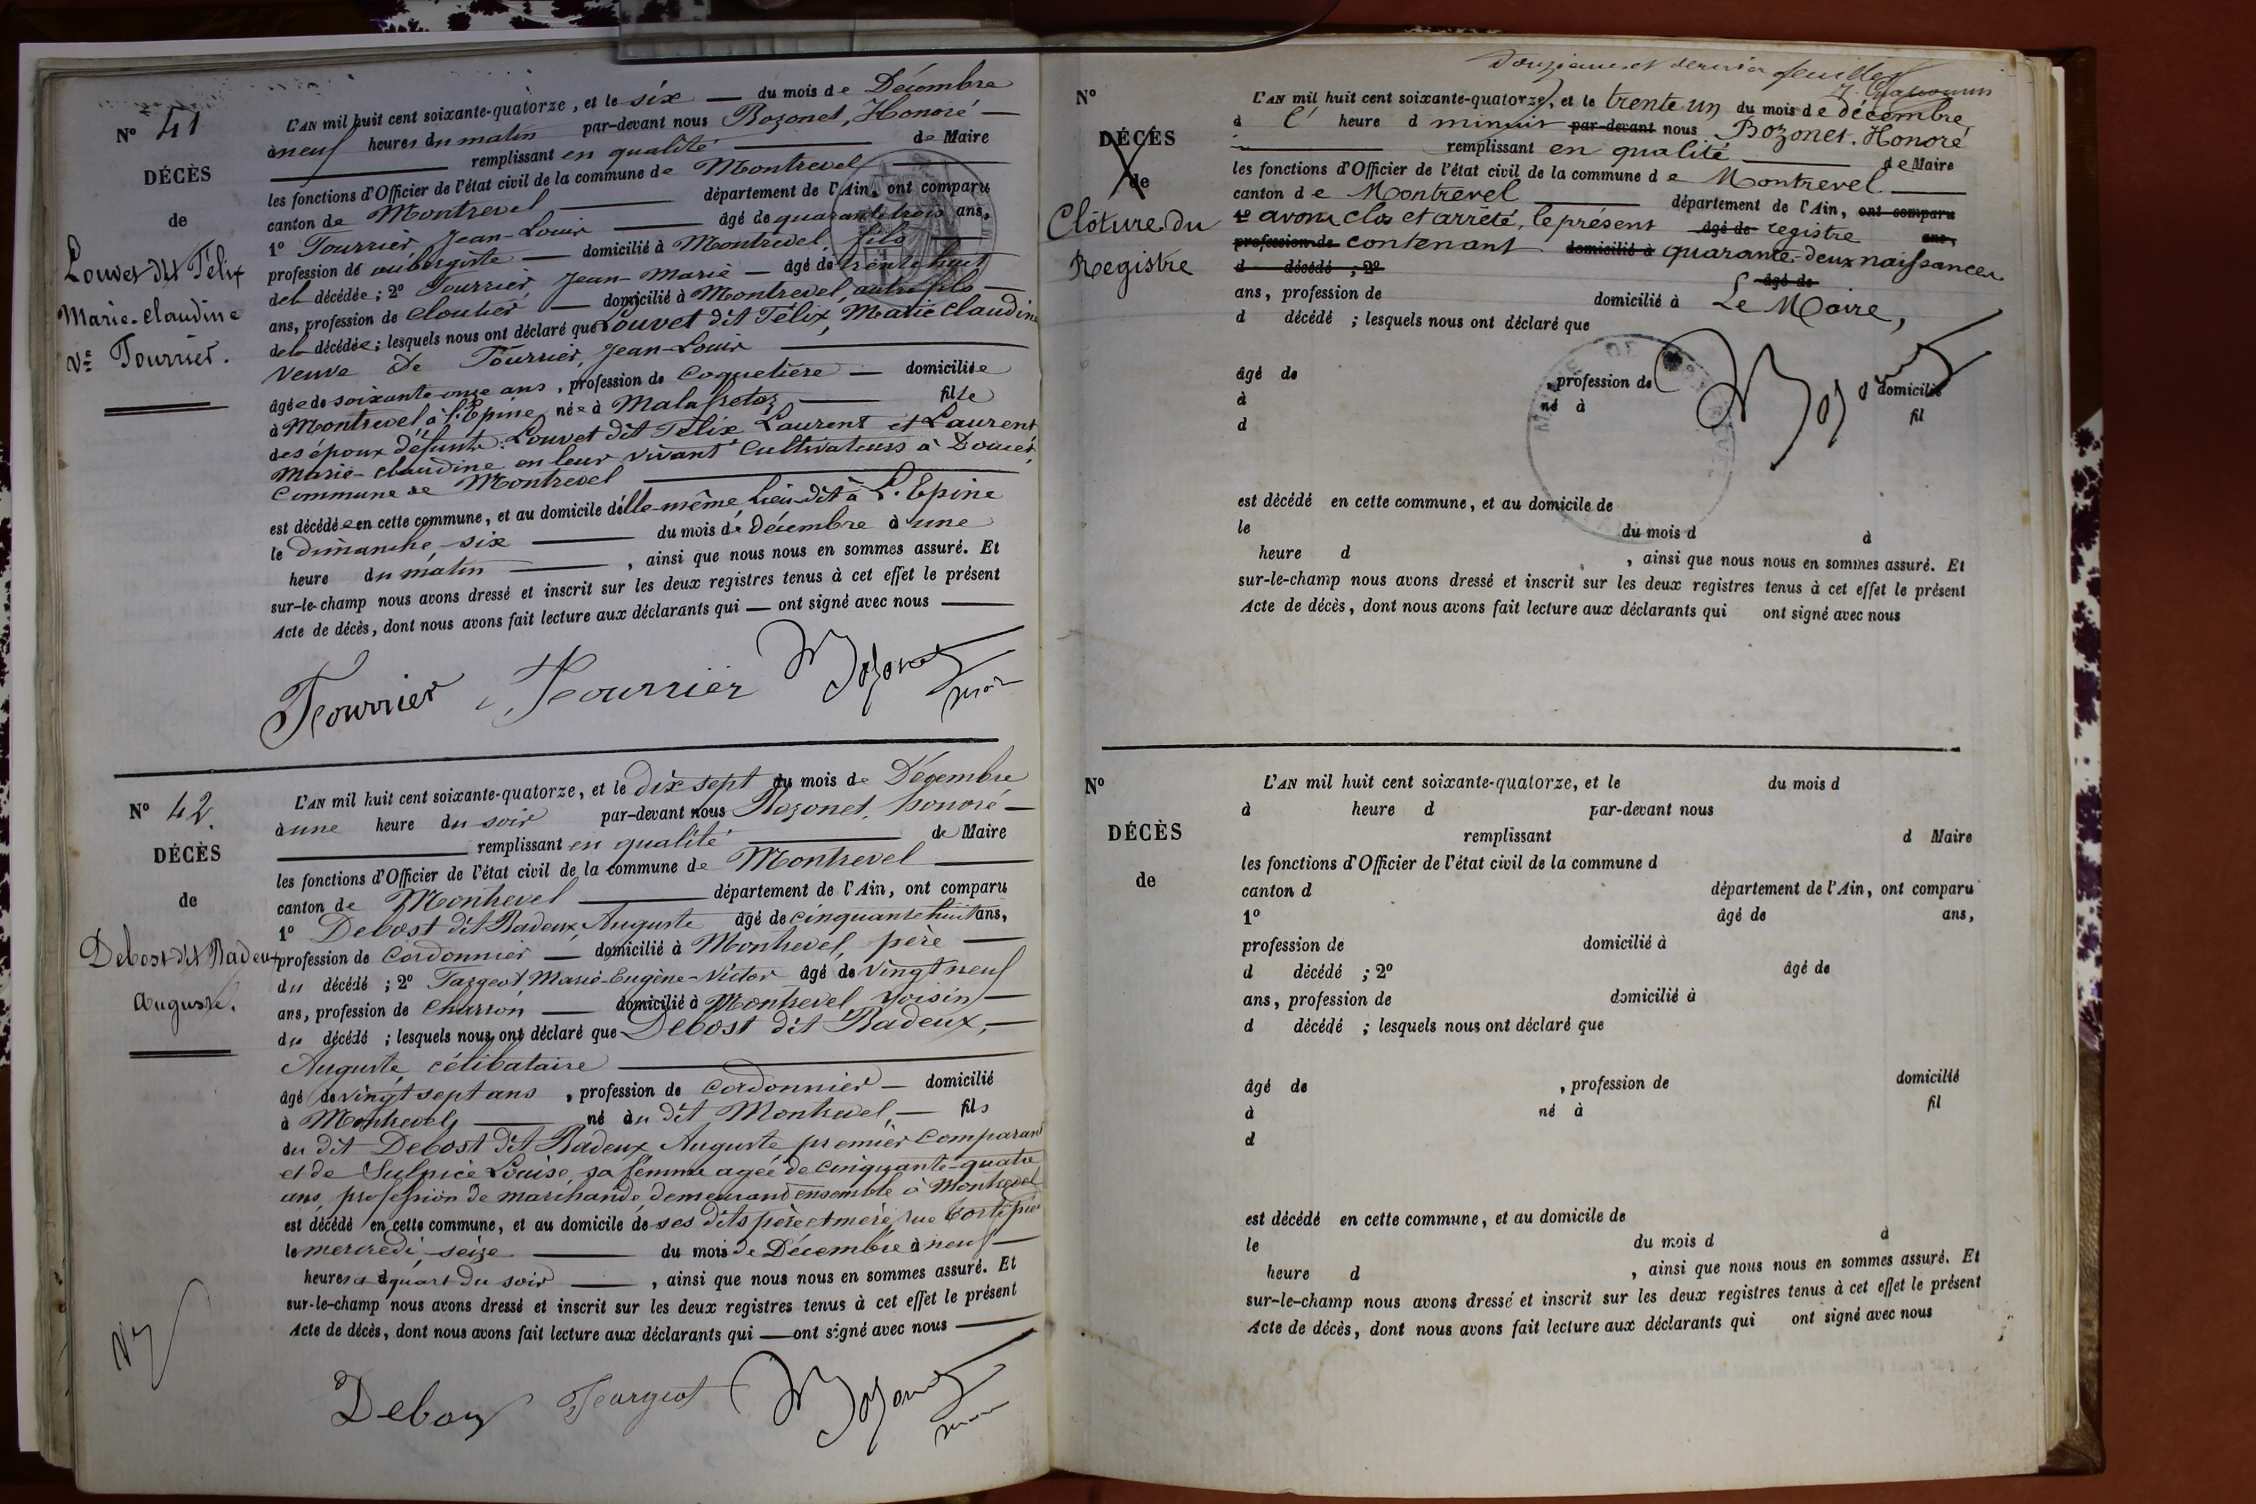 N° 41
DÉCÈS
de
Louvet dit Félix
Marie-Claudine
Vve Fourrier.
L'AN mil huit cent soixante-quatorze, et le six du mois de Décembre
à neuf heures du matin par-devant nous Bozonet, Honoré
remplissant en qualité de Maire
les fonctions d'Officier de l'état civil de la commune de Montrevel
canton de Montrevel département de l'Ain, ont comparu
1° Fourrier Jean-Louis âgé de quarante trois ans,
profession de aubergiste domicilié à Montrevel, fils
de la décédée ; 2° Fourrier Jean-Marie âgé de trente huit
ans, profession de Cloutier domicilié à Montrevel, autre fils
de la décédée ; lesquels nous ont déclaré que Louvet dit Félix, Marie Claudine
veuve de Fourrier, Jean-Louis
âgée de soixante onze ans, profession de Coquetière domiciliée
à Montrevel à l'Epine, née à Malafretaz fille
des époux défunts Louvet dit Félix Laurent et Laurent
Marie-Claudine en leur vivant Cultivateurs à
Commune de Montrevel
est décédée en cette commune, et au domicile d'elle-même, lieu dit à L'Epine
le dimanche six du mois de Décembre à une
heure du matin, ainsi que nous nous en sommes assuré. Et
sur-le-champ nous avons dressé et inscrit sur les deux registres tenus à cet effet le présent
Acte de décès, dont nous avons fait lecture aux déclarants qui ont signé avec nous
Fourrier Fourrier Bozonet
N° 42.
DÉCÈS
de
Debost dit Radeux
Auguste.
L'AN mil huit cent soixante-quatorze, et le dix sept du mois de Décembre
à une heure du soir par-devant nous Bozonet, honoré
remplissant en qualité de Maire
les fonctions d'Officier de l'état civil de la commune de Montrevel
canton de Montrevel département de l'Ain, ont comparu
1° Debost dit Radeux, Auguste âgé de cinquante huit ans,
profession de Cordonnier domicilié à Montrevel, père
du décédé ; 2° Fargeot Marie-Eugène-Victor âgé de vingt neuf
ans, profession de Charron domicilié à Montrevel, voisin
du décédé ; lesquels nous ont déclaré que Debost dit Radeux,
Auguste, célibataire
âgé de vingt sept ans, profession de Cordonnier domicilié
à Montrevel, né au dit Montrevel, fils
du dit Debost dit Radeux Auguste premier Comparant
et de Sulpice Louise, sa femme agée de Cinquante-quatre
ans, profession de marchande demeurant ensemble à Montrevel
est décédé en cette commune, et au domicile de ses dits père et mère, rue
le mercredi seize du mois de Décembre à neuf
heures et quart du soir, ainsi que nous nous en sommes assuré. Et
sur-le-champ nous avons dressé et inscrit sur les deux registres tenus à cet effet le présent
Acte de décès, dont nous avons fait lecture aux déclarants qui ont signé avec nous
Debost Fargeot Bozonet
Douzième et dernier feuillet
N°
DÉCÈS
de
Clôture du
Registre
L'AN mil huit cent soixante-quatorze, et le trente un du mois de décembre
à heure d minuit par-devant nous Bozonet, Honoré
remplissant en qualité de Maire
les fonctions d'Officier de l'état civil de la commune de Montrevel
canton de Montrevel département de l'Ain, ont comparu
1° avons clos et arrêté, le présent âgé de registre ans,
profession de contenant domicilié à quarante-deux naissances
d décédé ; 2° âgé de
ans, profession de domicilié à Le Maire,
d décédé ; lesquels nous ont déclaré que
Bozonet
âgé de , profession de domicilié
à né à fil
d
est décédé en cette commune, et au domicile de
le du mois d à
heure d , ainsi que nous nous en sommes assuré. Et
sur-le-champ nous avons dressé et inscrit sur les deux registres tenus à cet effet le présent
Acte de décès, dont nous avons fait lecture aux déclarants qui ont signé avec nous
N°
DÉCÈS
de
L'AN mil huit cent soixante-quatorze, et le du mois d
à heure d par-devant nous
remplissant d Maire
les fonctions d'Officier de l'état civil de la commune d
canton d département de l'Ain, ont comparu
1° âgé de ans,
profession de domicilié à
d décédé ; 2° âgé de
ans, profession de domicilié à
d décédé ; lesquels nous ont déclaré que
âgé de , profession de domicilié
à né à fil
d
est décédé en cette commune, et au domicile de
le du mois d à
heure d , ainsi que nous nous en sommes assuré. Et
sur-le-champ nous avons dressé et inscrit sur les deux registres tenus à cet effet le présent
Acte de décès, dont nous avons fait lecture aux déclarants qui ont signé avec nous